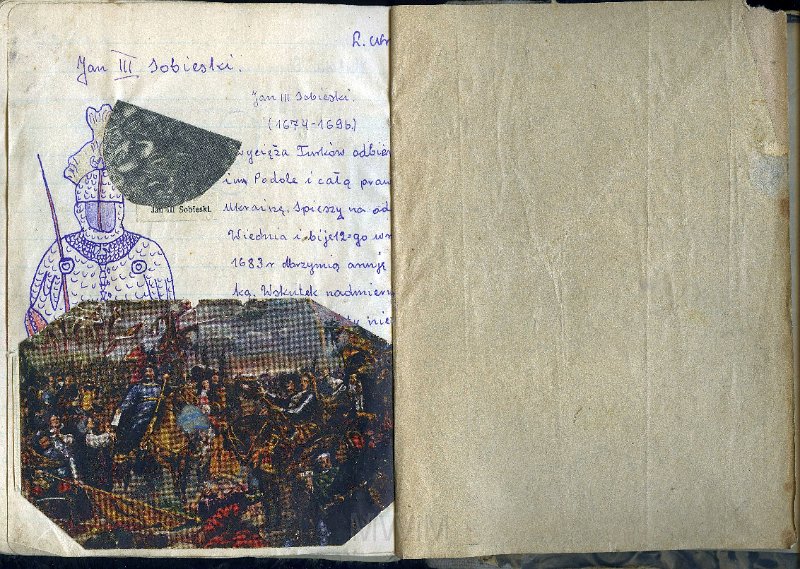 R.
Jan III Sobieski.
Jan III Sobieski.
(1674-1696)
wycięża Turków
im Podole i całą
Ukrainę. Spieszy na
Wiednia i bije 12-go
1683 r olbrzymią armię
ką. Wskutek
Jan III Sobieski.
MWM